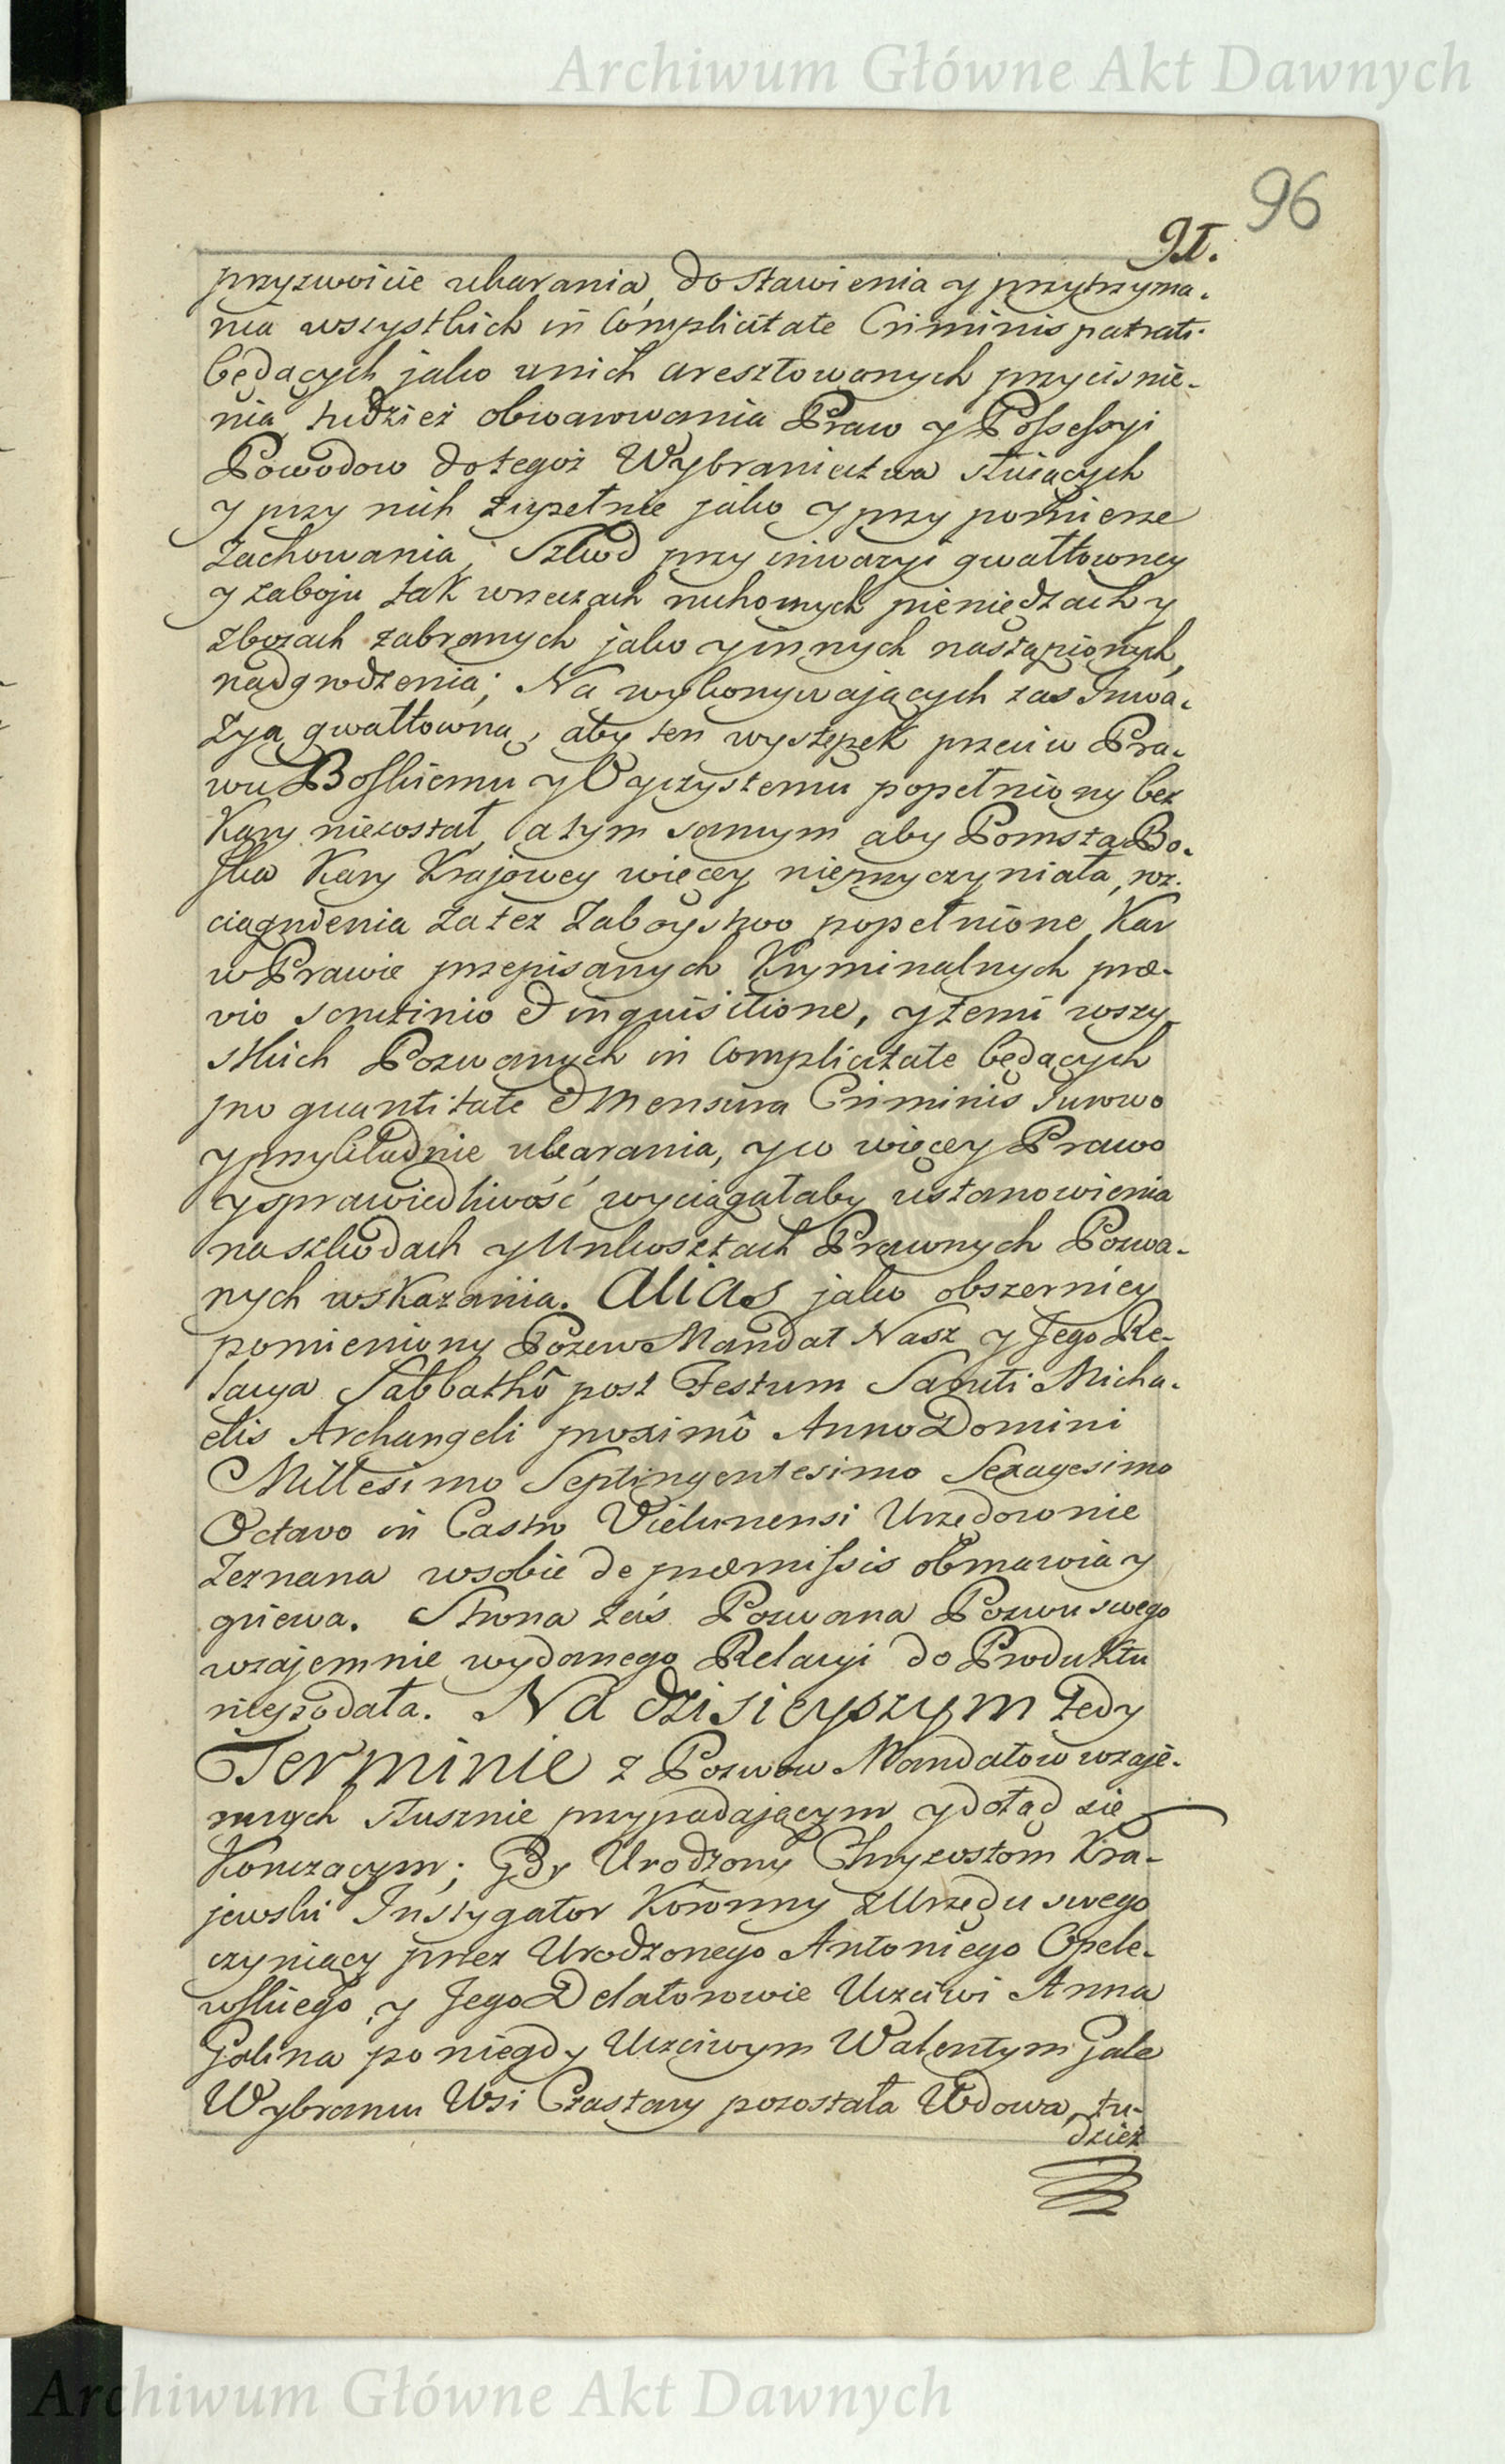 Archiwum Główne Akt Dawnych
96
91.
przyzwoicie ukarania, dostawienia y przytrzyma-
nia wszystkich in Complicitate Criminis patrati
będących jako unich aresztowanych przyciśnie-
nia, tudzież obwarowania Praw y Possessyi
Powodow do tegoż Wybraniectwa służących
y przy nich zupełnie jako y przy pomierze
zachowania; Szkod przy inwazyi gwałtowney
y zaboju tak wrzeczach ruchomych pieniędzach y
zbożach zabranych jako y innych nastąpionych,
nadgrodzenia; Na wykonywających zas Inwa-
zyą gwałtowną, aby ten występek przeciw Pra-
wu Boskiemu y Oyczystemu popełniony bez
Kary niezostał, a tym samym aby Pomsta Bo-
ska Kary Krajowey więcey nieprzyczyniała, roz-
ciągnienia za też Zaboystwo popełnione Kar
w Prawie przepisanych Kryminalnych præ-
vio scrutinio & inquisitione, y temi wszy-
stkich Pozwanych in Complicitate będących
pro quantitate & Mensura Criminis surowo
y przykładnie ukarania, y co więcey Prawo
y sprawiedliwość wyciągałaby ustanowienia
na szkodach y Unkosztach Prawnych Pozwa-
nych wskazania. Alias jako obszerniey
pomieniony Pozew Mandat Nasz y Jego Re-
lacya Sabbathô post Festum Sancti Micha-
elis Archangeli proximô Anno Domini
Millesimo Septingentesimo Sexagesimo
Octavo in Castro Vielunensi Urzędownie
Zeznana wsobie de præmissis obmawia y
gniewa. Strona zaś Pozwana Pozwu swego
wzajemnie wydanego Relacyi do Produktu
niepodała. Na dzisieyszym tedy
Terminie z Pozwow Mandatow wzaje-
mnych słusznie przypadającym y dotąd się
Konczącym; Gdy Urodzony Chryzostom Kra-
jewski Instygator Koronny z Urzędu swego
czyniący przez Urodzonego Antoniego Opele-
wskiego, y Jego Delatorowie Uczciwi Anna
Galina po niegdy Uczciwym Walentym Gale
Wybrancu Wsi Czastary pozostała Wdowa, tu-
dzież
Archiwum Główne Akt Dawnych